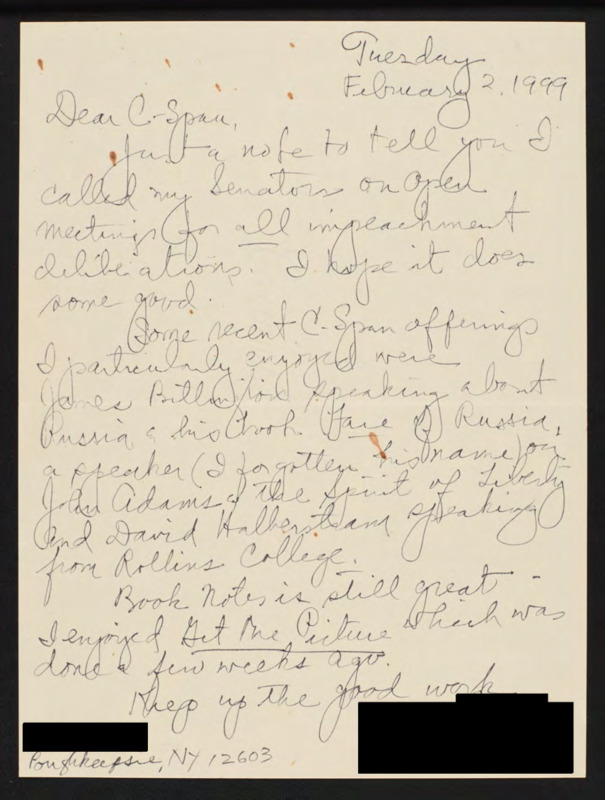 Tuesday
February 2, 1999
Dear C-Span,
Just a note to tell you I
called my Senators on open
meetings for all impeachment
deliberations. I hope it does
some good.
Some recent C-Span offerings
I particularly enjoyed were
James Billington speaking about
Russia & his book Face of Russia,
a speaker (I forgotten his name) on
John Adams & the Spirit of Liberty
and David Halberstam speaking
from Rollins College.
Book Notes is still great -
I enjoyed Get the Picture which was
done a few weeks ago.
Keep up the good work.
Poughkeepsie, NY 12603